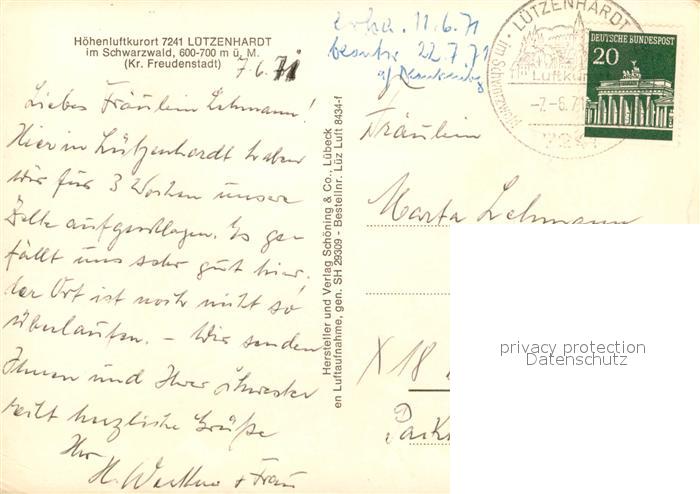 Höhenluftkurort 7241 LÜTZENHARDT
im Schwarzwald, 600-700 m ü. M.
(Kr. Freudenstadt)
7.6.71
Liebes Fräulein Lehmann!
Hier in Lützenhardt haben
wir für 3 Wochen unsere
Zelte aufgeschlagen. Es ge-
fällt uns sehr gut hier.
der Ort ist noch nicht so
überlaufen. – Wir senden
Ihnen und Ihrer Schwester
recht herzliche Grüße
Ihr
H. + Frau
Hersteller und Verlag Schöning & Co., Lübeck
en Luftaufnahme, gen. SH 29309 - Bestellnr. Lüz Luft 8434-f
erha. 11.6.71
beantw. 22.7.71
LÜTZENHARDT
im
Luftkurort
-7.-6.71
7241
DEUTSCHE BUNDESPOST
20
Fräulein
Marta Lehmann
X 18
privacy protection
Datenschutz